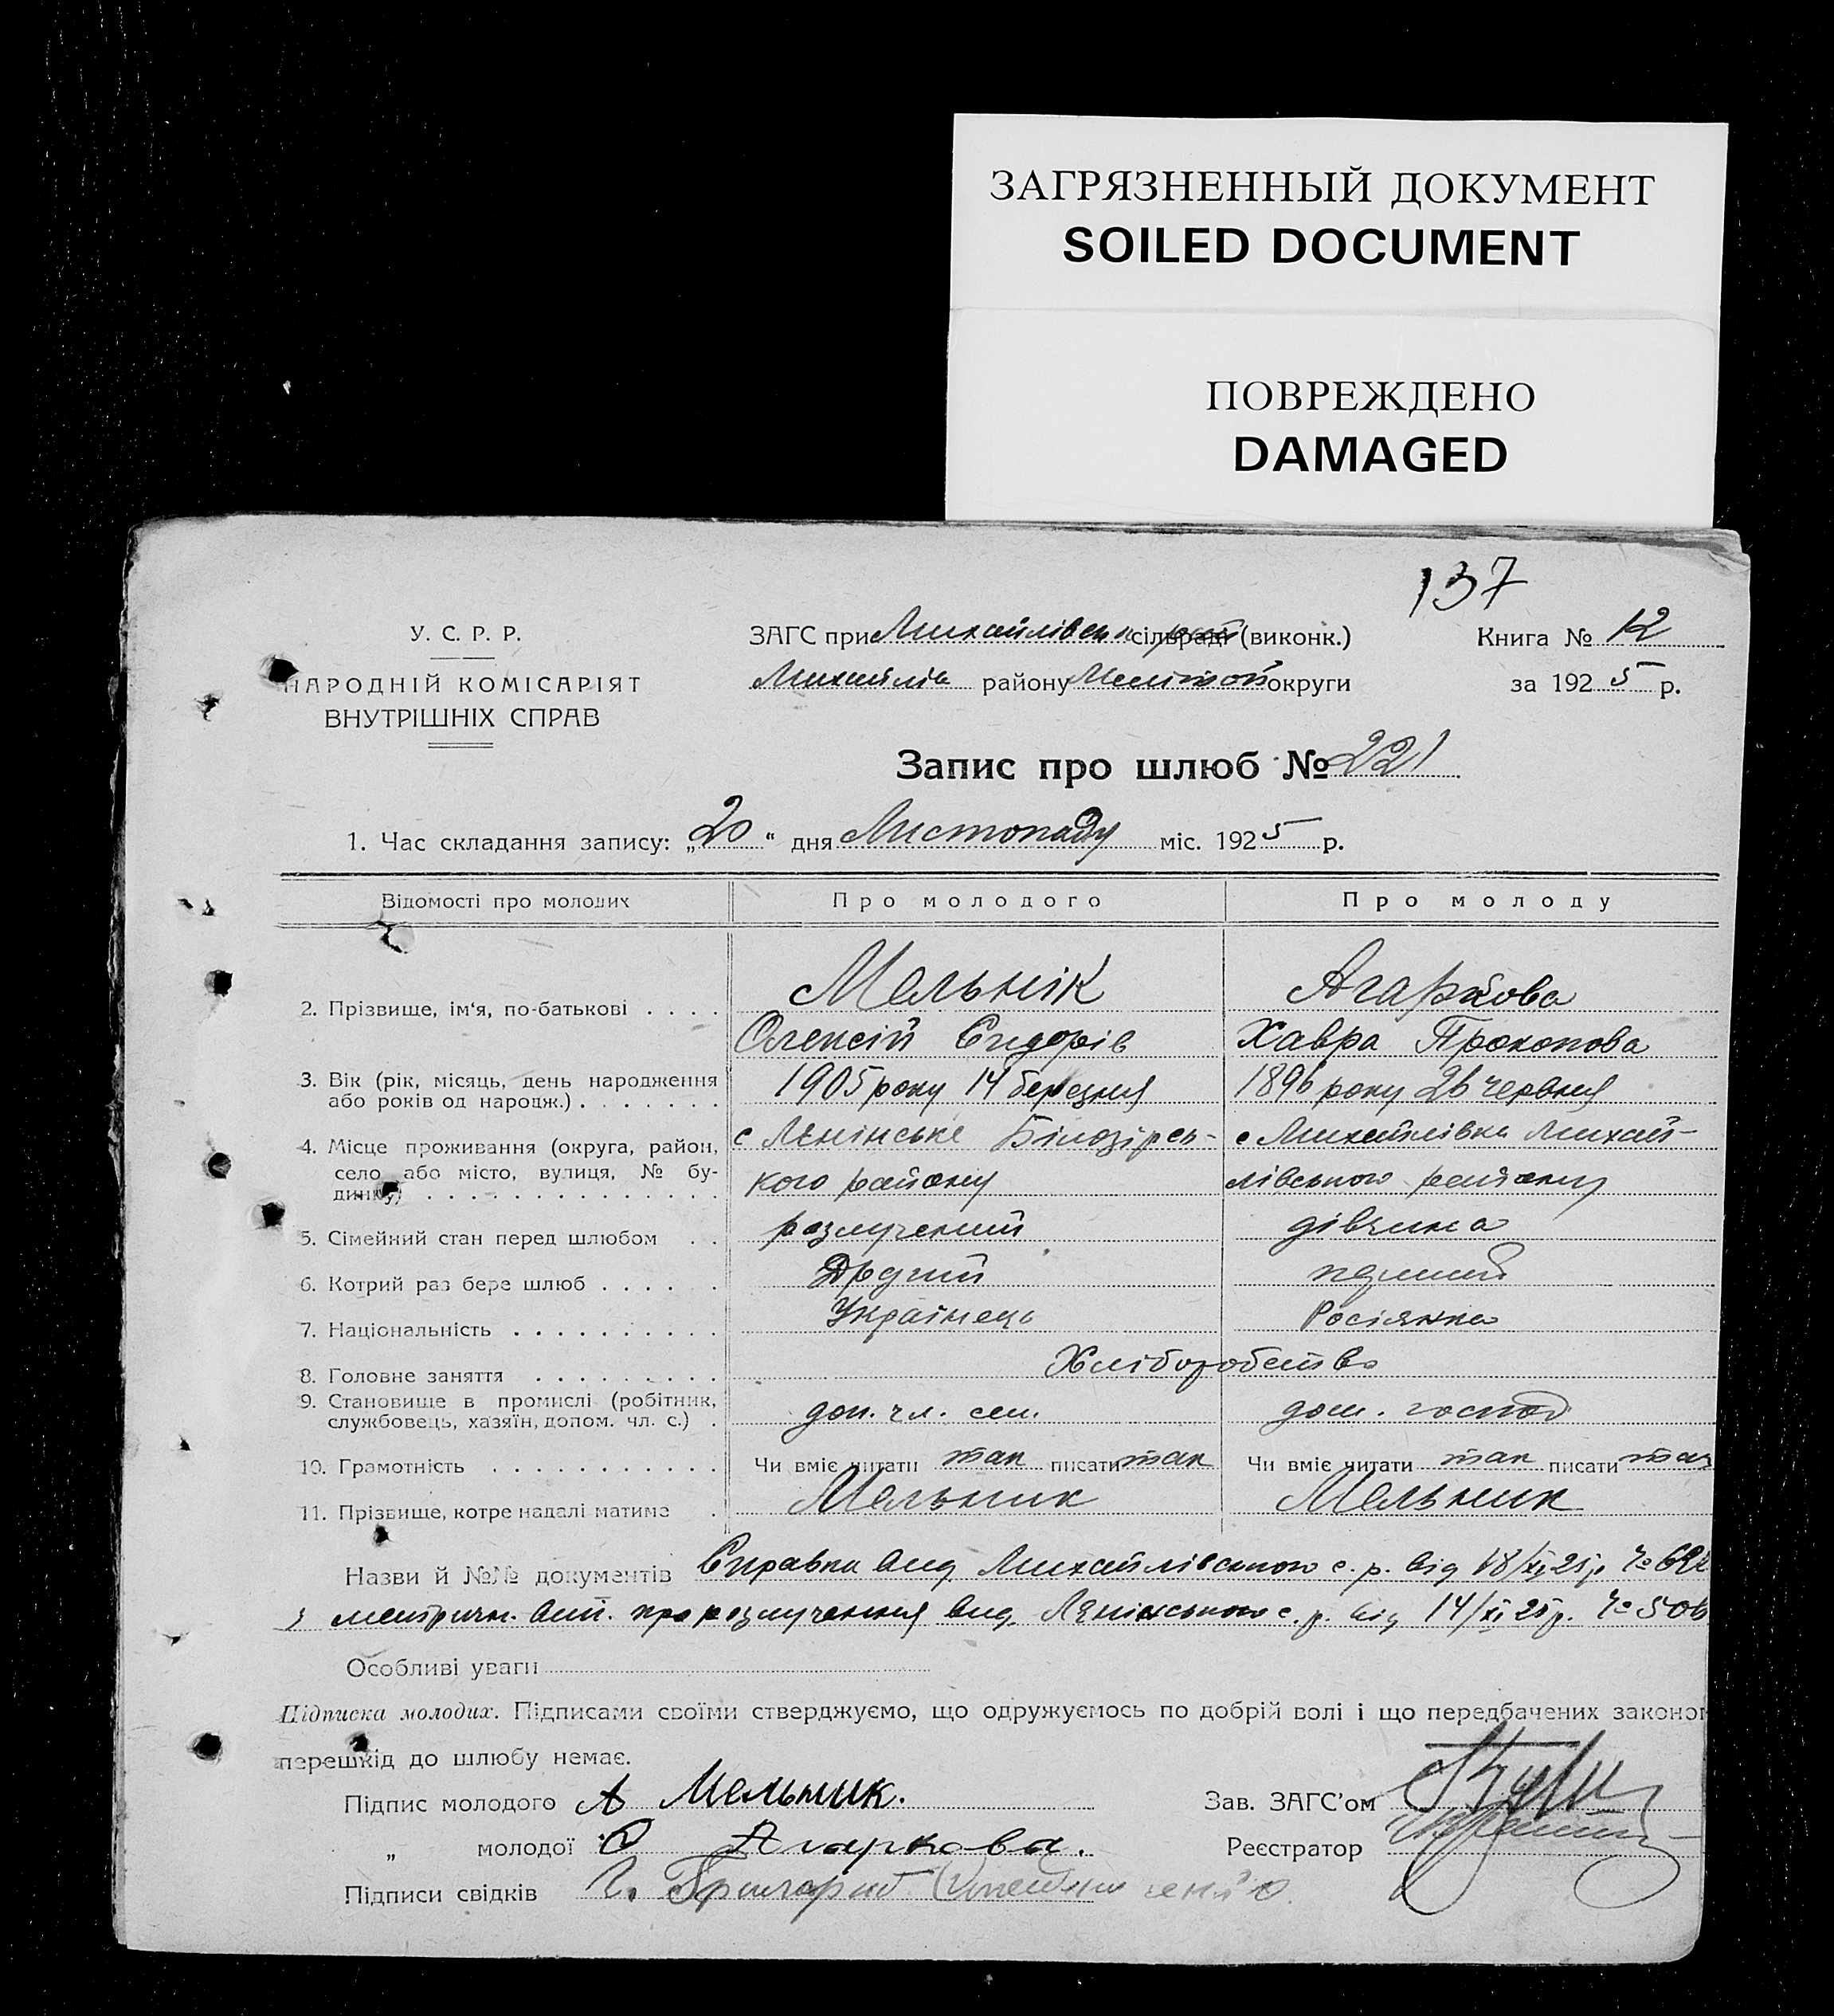 ЗАГРЯЗНЕННЫЙ ДОКУМЕНТ
SOILED DOCUMENT
ПОВРЕЖДЕНО
DAMAGED
137
У. С. Р. Р.
НАРОДНІЙ КОМІСАРІЯТ
ВНУТРІШНІХ СПРАВ
ЗАГС при Михайлівськ сільраді (виконк.)
Михайлів району Мелітоп округи
Книга № 12
за 1925 р.
Запис про шлюб № 221
1. Час складання запису: „20“ дня Листопаду міс. 1925 р.
Відомості про молодих Про молодого Про молоду
2. Прізвище, ім‘я, по-батькові . . . . Мельнік Агаркова
Олексій Сидорів Хавра Прокопова
3. Вік (рік, місяць, день народження або років од народж.) . . . . . . . 1905 року 14 березня 1896 року 26 червня
4. Місце проживання (округа, район, село або місто, вулиця, № будинку) . . . . . . . . . . . . . .
с Ленінське Білозірсь- с Михайлівка Михай-
кого району лівського району
5. Сімейний стан перед шлюбом . . розлучений дівчина
6. Котрий раз бере шлюб . . . . . Другий перший
7. Національність . . . . . . . . . . Українець Росіянка
8. Головне заняття . . . . . . . . . Хліборобство
9. Становище в промислі (робітник, службовець, хазяїн, допом. чл. с.) . доп. чл. сем. дом. господ
10. Грамотність . . . . . . . . . . . Чи вміє читати так писати так Чи вміє читати так писати так
11. Прізвище, котре надалі матиме . Мельник Мельник
Назви й №№ документів Справка вид Михайлівського с. р. від 18/XI 25 р.
метричн. вит. про розлучення вид. Ленінського с. р. від 14/XI 25 р.
Особливі уваги
Підписка молодих. Підписами своїми стверджуємо, що одружуємось по добрій волі і що передбачених законом
перешкід до шлюбу немає.
Підпис молодого А Мельник.
„ молодої Агаркова.
Підписи свідків Григорий
Зав. ЗАГС’ом
Реєстратор